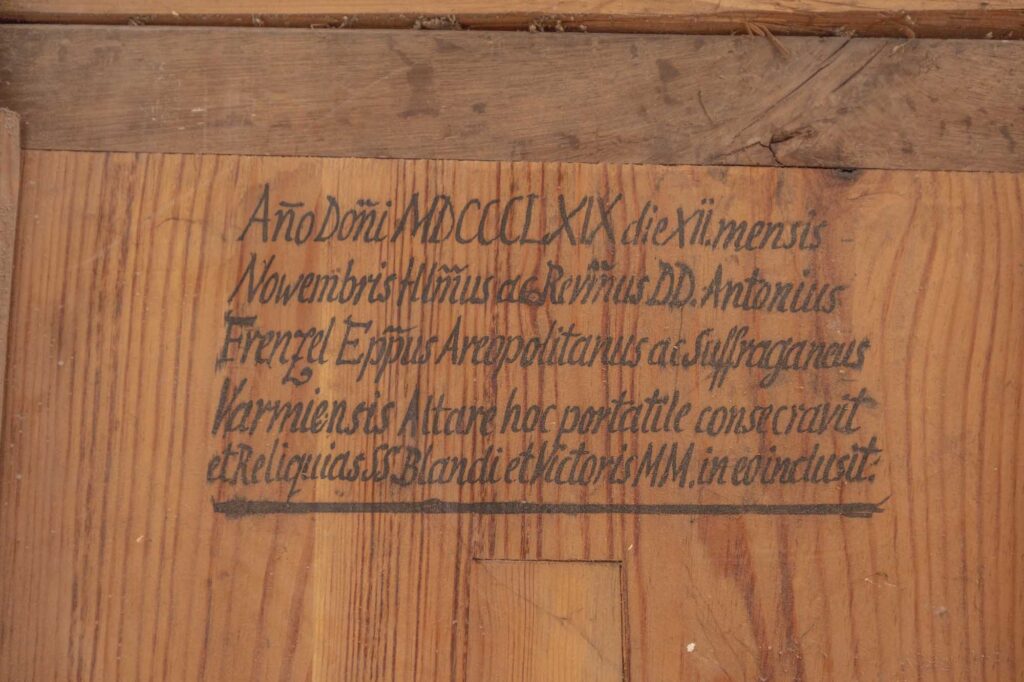 Año Dom̃i MDCCCLXIX die XII. mensis
Nowembris Illm̃us ac Revm̃us DD. Antonius
Frenzel Epp̃us Areopolitanus ac Suffraganeus
Varmiensis Altare hoc portatile consecravit
et Reliquias SS. Blandi et Victoris MM. in eo inclusit: